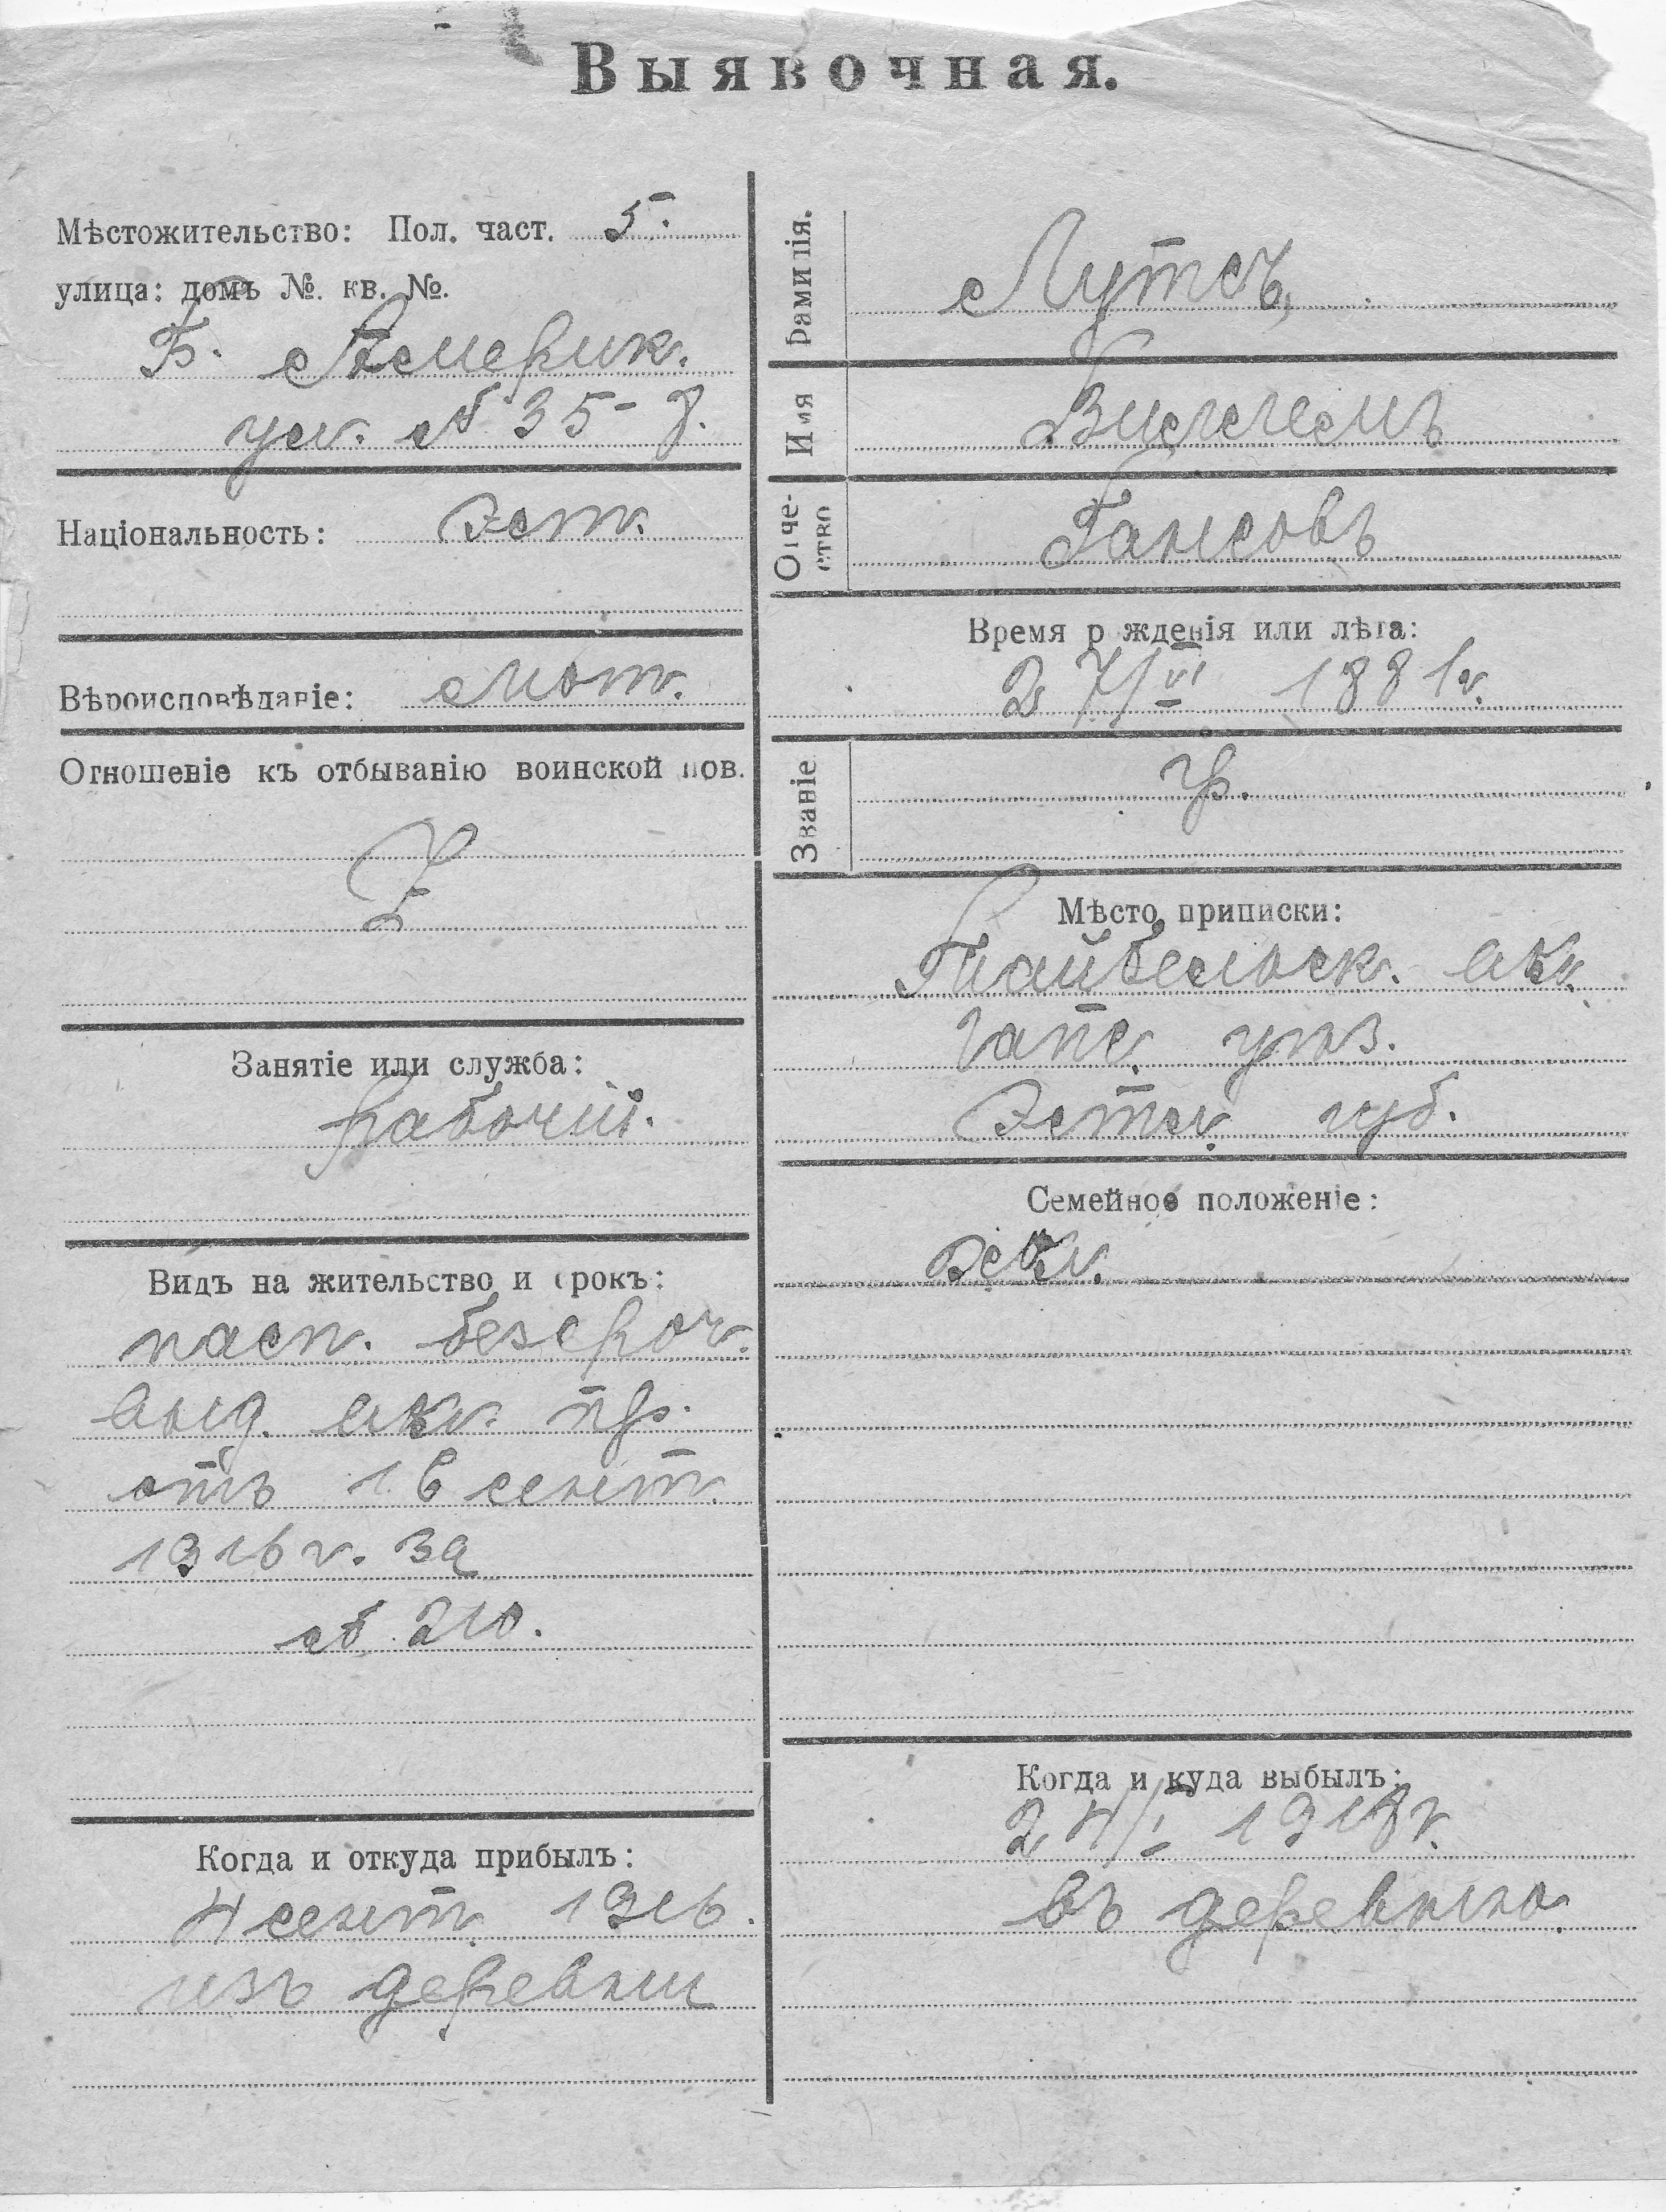 Выявочная.
Мѣстожительство: Пол. част. 5.
улица: домъ №. кв. №.
Б. Америк.
ул. № 35-8.
Національность: Эст.
Вѣроисповѣданіе: Лют.
Отношеніе къ отбыванію воинской пов.
Занятіе или служба:
рабочій.
Видъ на жительство и срокъ:
пасп. безсроч.
выд. вол. пр.
отъ 16 сент.
1916 г. за
№ 210.
Когда и откуда прибылъ:
4 сент. 1916.
изъ деревни
Фамилія.
Лутсъ,
Имя
Виллемъ
Отчество
Гансовъ
Время рожденія или лѣта:
27/VI 1881 г.
Званіе
кр.
Мѣсто приписки:
вол.
Гапс. уѣз.
Эстл. губ.
Семейное положеніе:
Когда и куда выбылъ:
24/I 1918 г.
въ деревню.